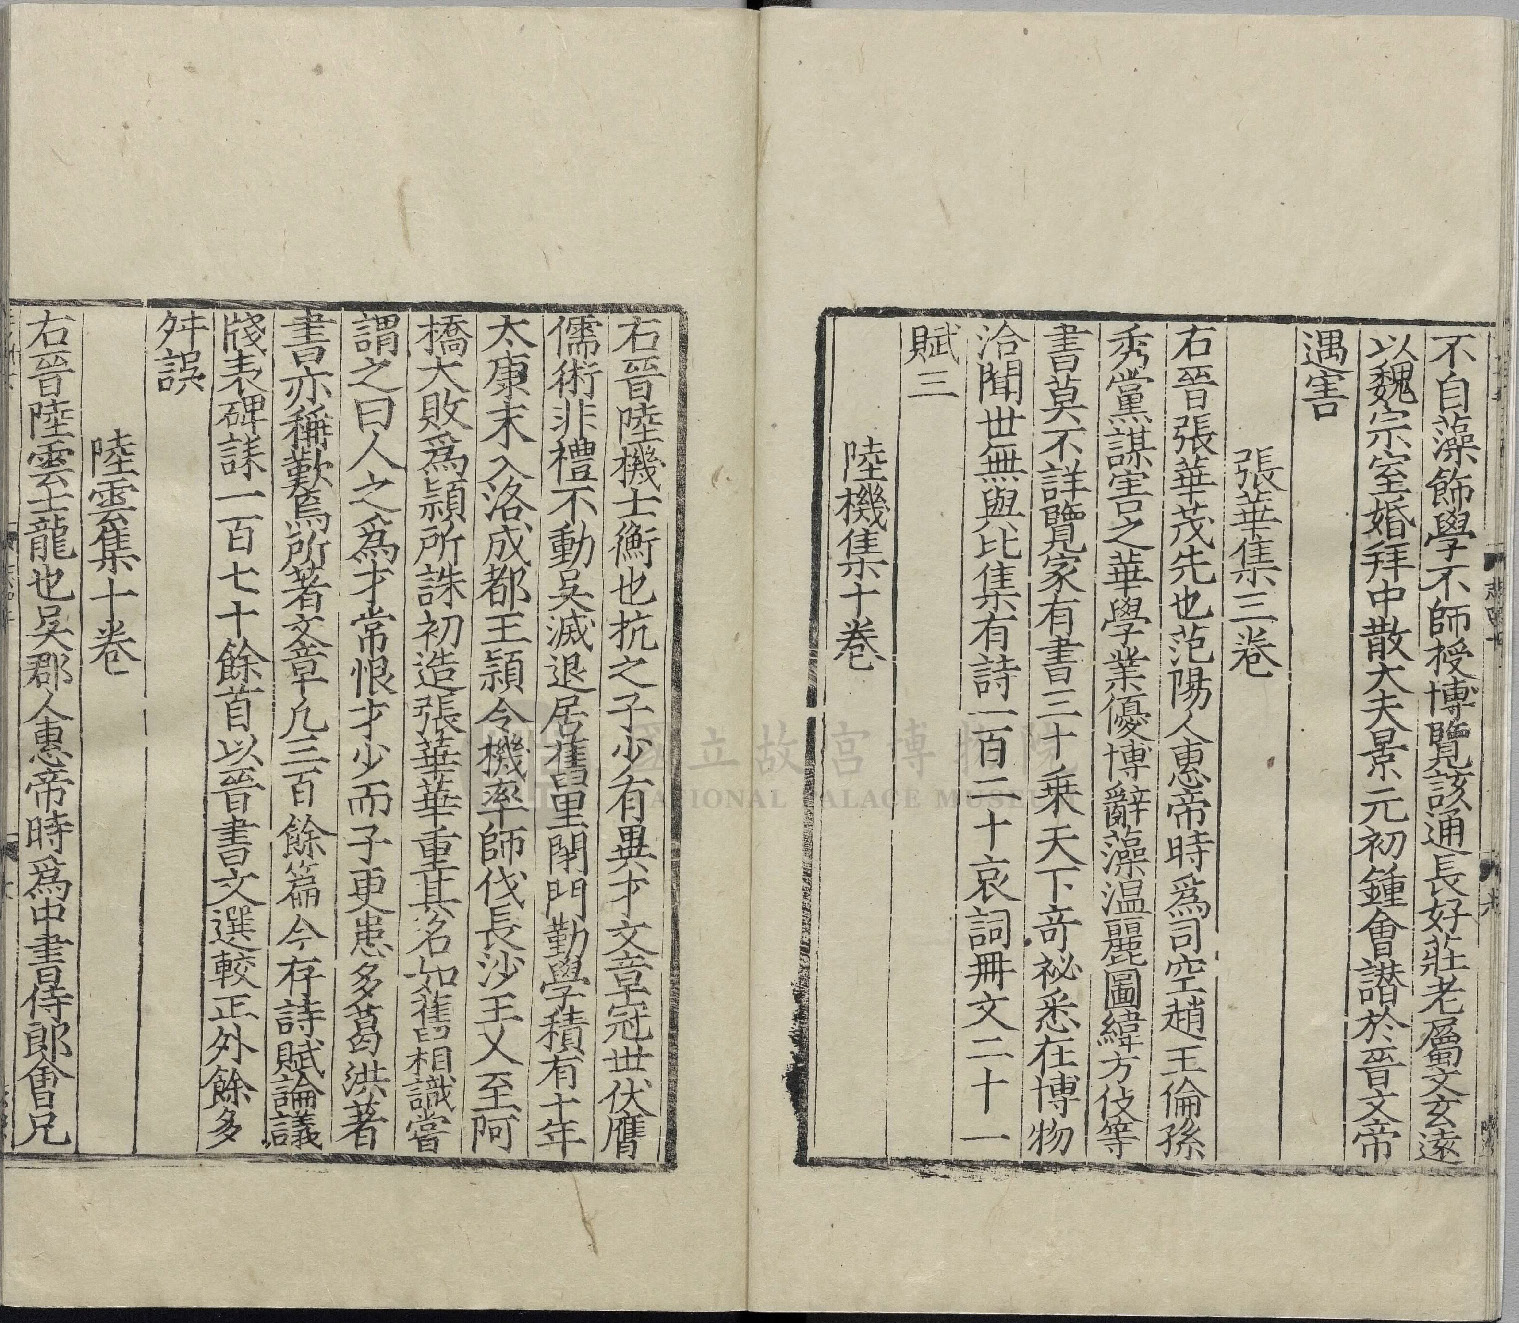 不自藻飾學不師授博覽該通長好莊老屬文玄遠
以魏宗室婚拜中散大夫景元初鍾會譖於晉文帝
遇害
張華集三卷
右晉張華茂先也范陽人惠帝時爲司空趙王倫孫
秀黨謀害之華學業優博辭藻温麗圖緯方伎等
書莫不詳覽家有書三十乗天下竒祕悉在博物
洽聞世無與比集有詩一百二十哀詞冊文二十一
賦三
陸機集十卷
右晉陸機士衡也抗之子少有異才文章冠世伏膺
儒術非禮不動吳滅退居舊里閉門勤學積有十年
太康末入洛成都王頴令機率師伐長沙王乂至河
橋大敗爲頴所誅初造張華華重其名如舊相識嘗
謂之曰人之爲才常恨才少而子更患多葛洪著
書亦稱歎焉所著文章凡三百餘篇今存詩賦論議
牋表碑誄一百七十餘首以晉書文選較正外餘多
舛誤
陸雲集十卷
右晉陸雲士龍也吳郡人惠帝時爲中書侍郎會兄
國立故宮博物院
NATIONAL PALACE MUSEUM